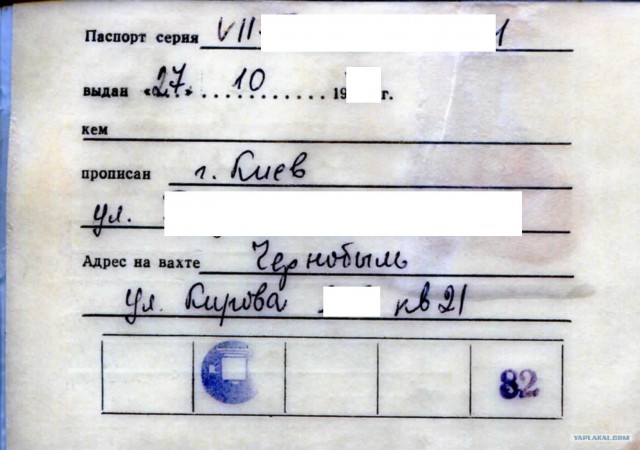 Паспорт серия VII-
выдан «27» 10 19 г.
кем
прописан г. Киев
ул.
Адрес на вахте Чернобыль
ул. Кирова кв 21
82
YAPLAKAL.COM